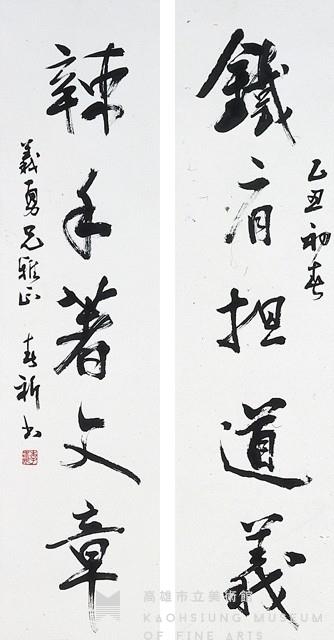 乙丑初春
鐵肩担道義
辣手著文章
義勇兄雅正 春祈书
高雄市立美術館
KAOHSIUNG MUSEUM
OF FINE ARTS